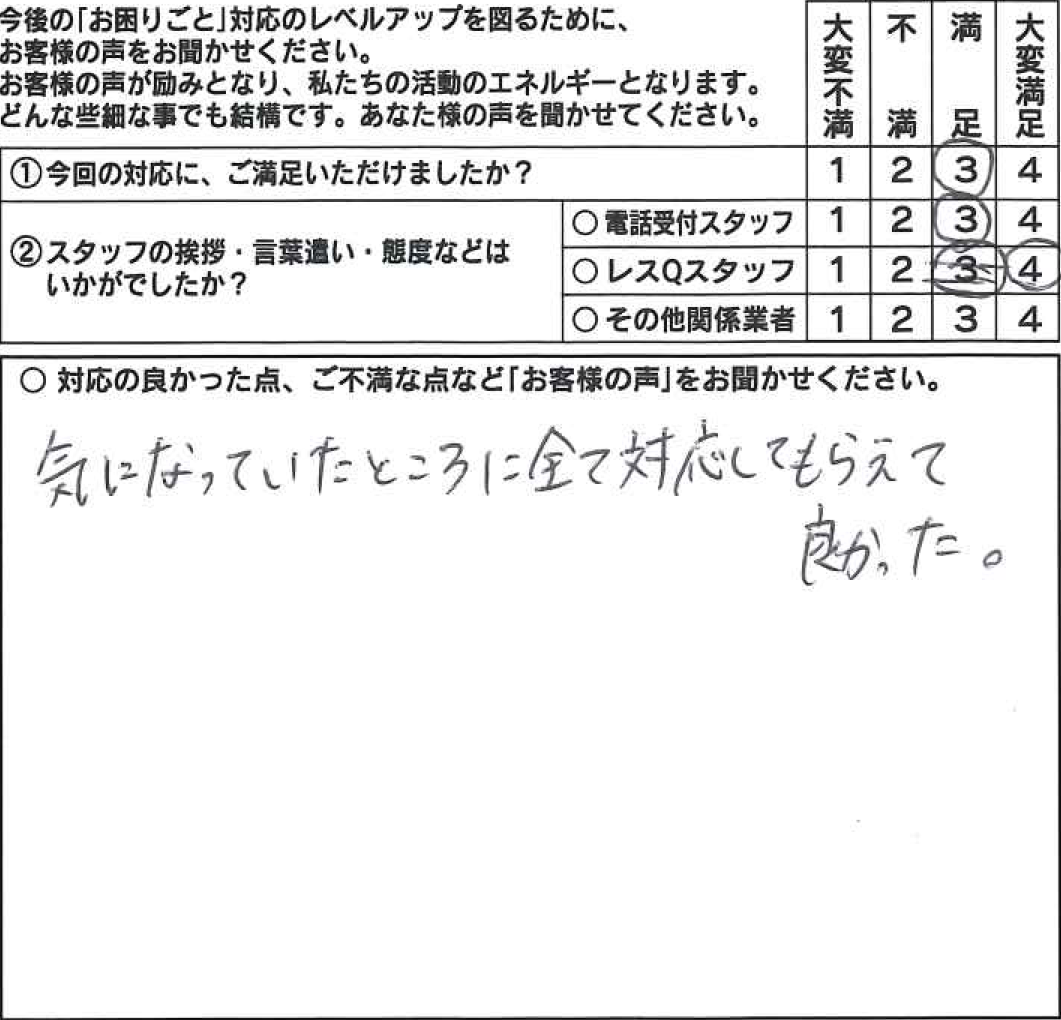 今後の「お困りごと」対応のレベルアップを図るために、
お客様の声をお聞かせください。
お客様の声が励みとなり、私たちの活動のエネルギーとなります。
どんな些細な事でも結構です。あなた様の声を聞かせてください。
大変不満 不満 満足 大変満足
①今回の対応に、ご満足いただけましたか？ 1 2 3 4
②スタッフの挨拶・言葉遣い・態度などは
いかがでしたか？
○電話受付スタッフ 1 2 3 4
○レスQスタッフ 1 2 3 4
○その他関係業者 1 2 3 4
○ 対応の良かった点、ご不満な点など「お客様の声」をお聞かせください。
気になっていたところに全て対応してもらえて
良かった。